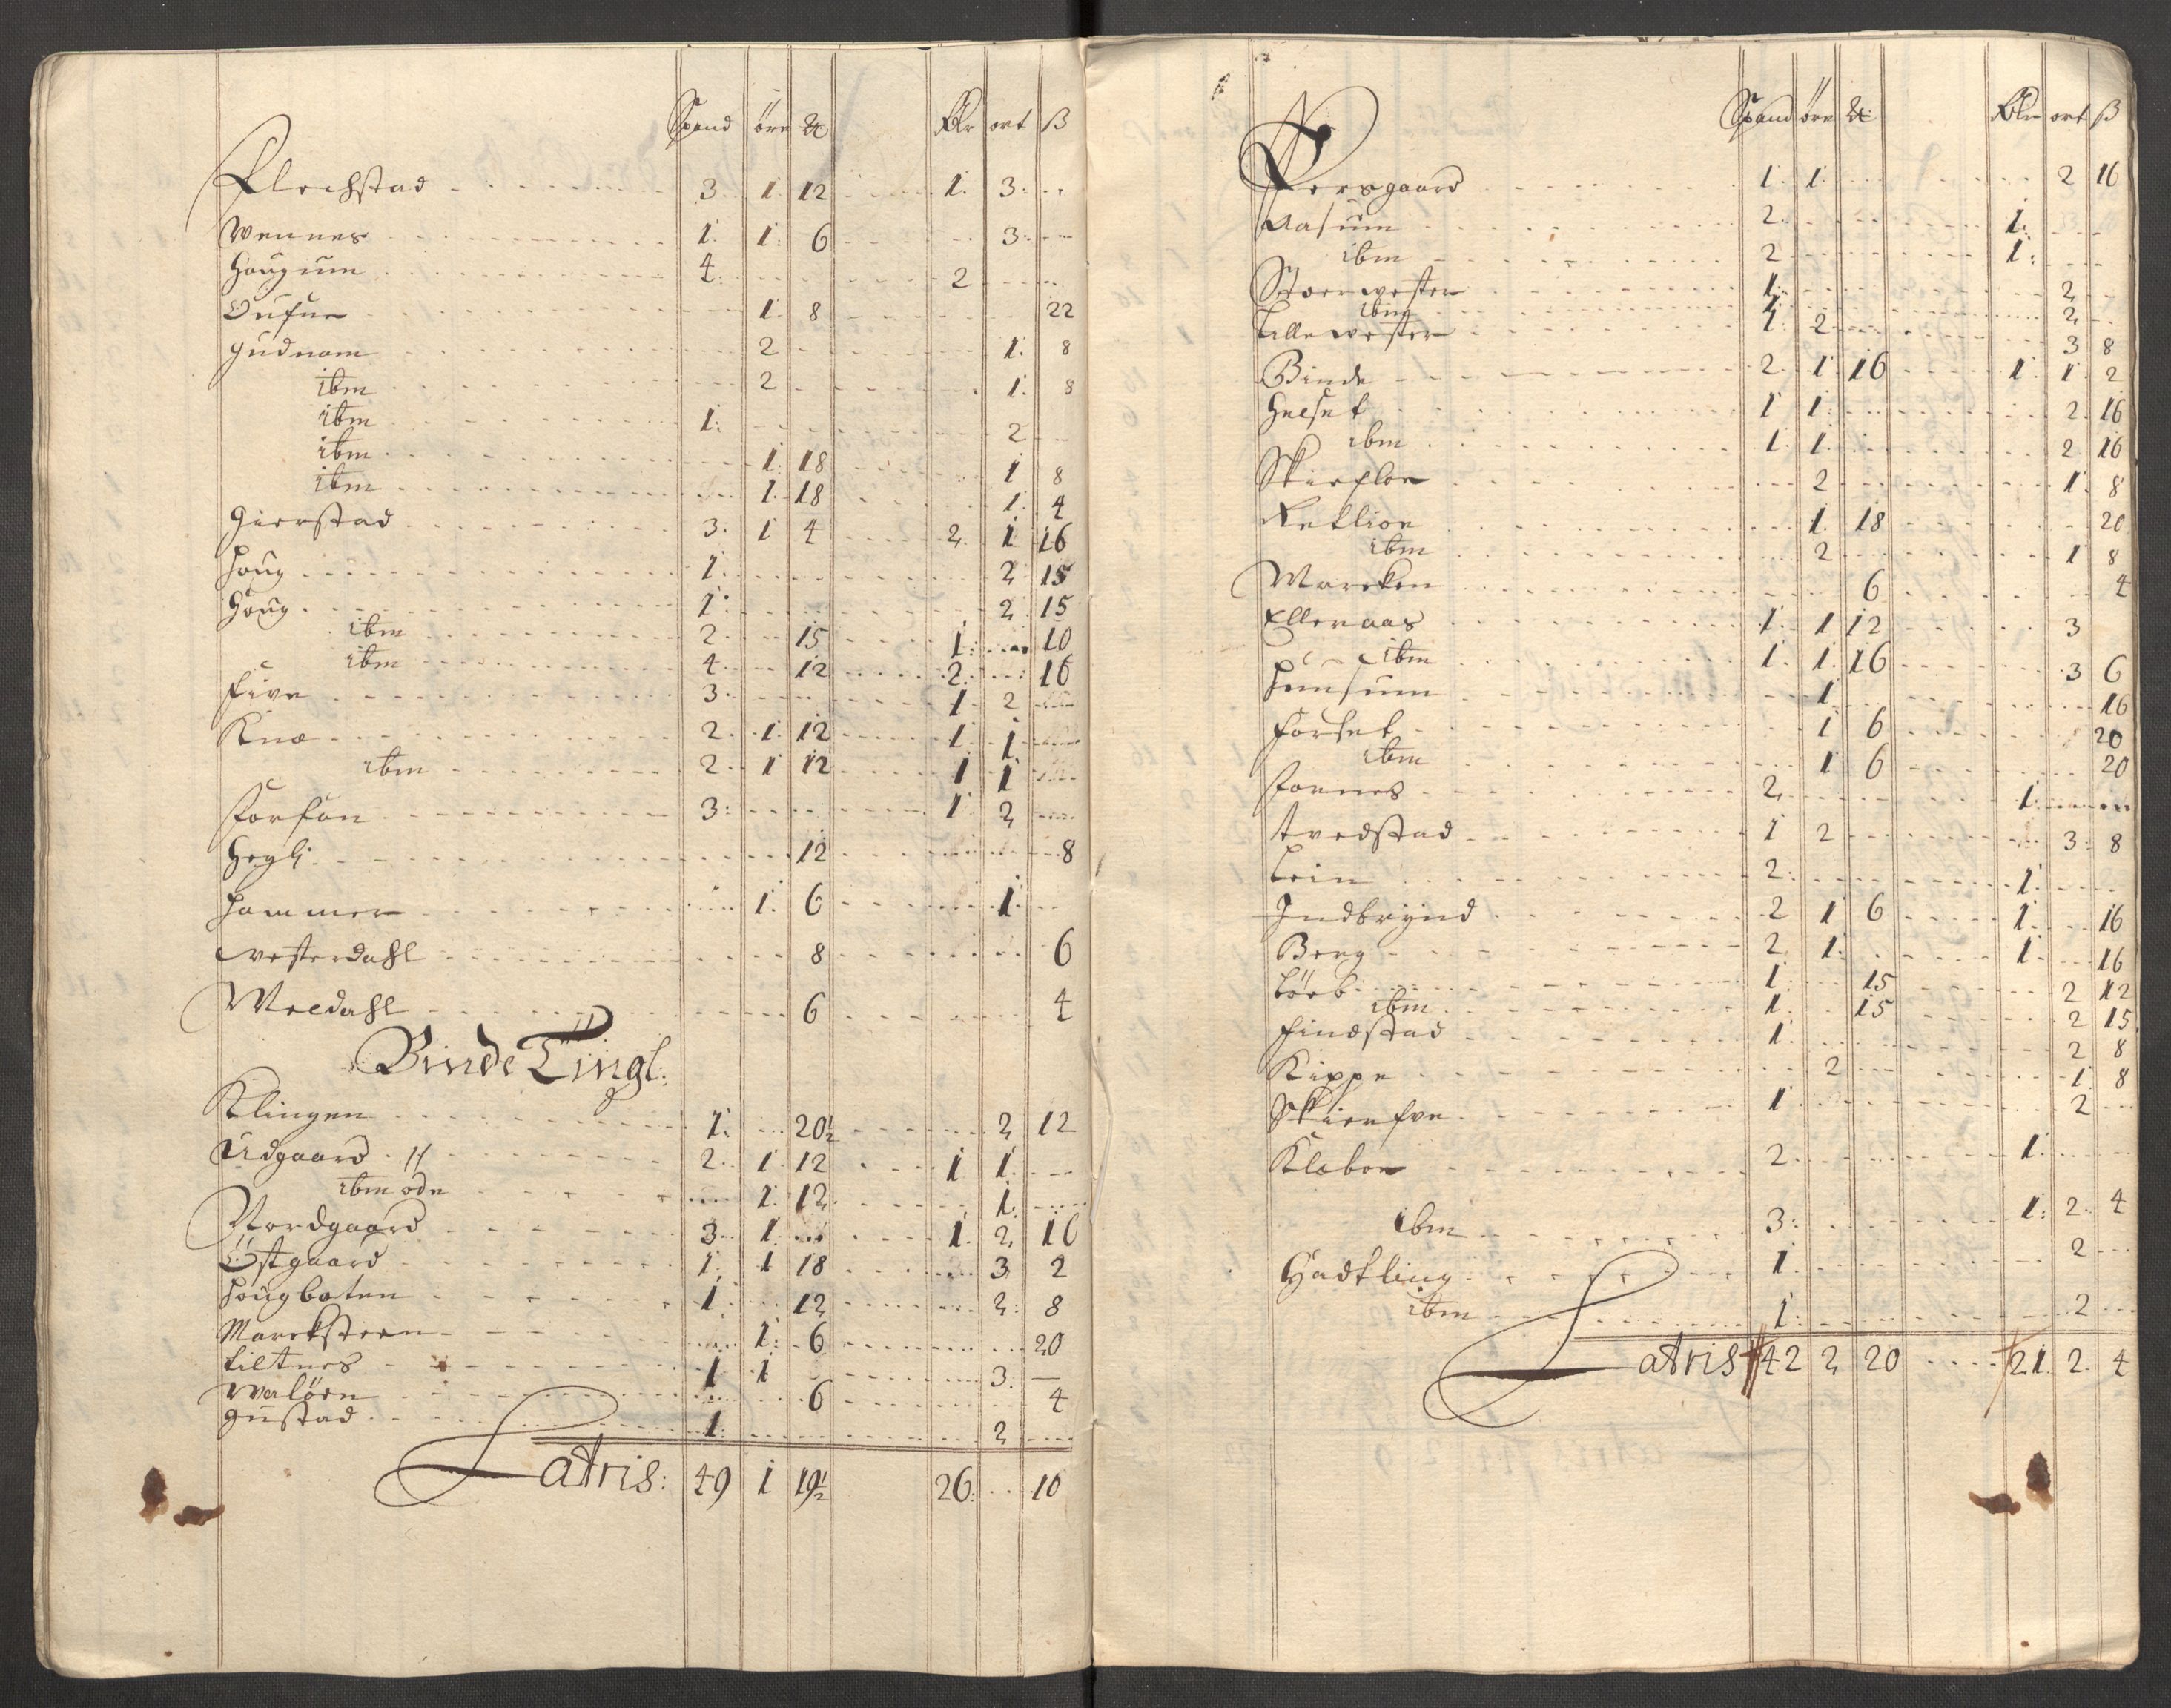 Spand öre ₰ Rdlr ort ß
Flechstad 3 1 12 1 3
Wennes 1 1 6 3
Hougum 4 2
Oufue 1 8 22
Gudnam 2 1 8
ibm 2 1 8
ibm 1 2
ibm 1 18 1 8
ibm 1 18 1 4
Gierstad 3 1 4 2 1 16
Houg 1 2 15
Houg 1 2 15
ibm 2 15 1 10
ibm 4 12 2 16
Five 3 1 2
Knæ 2 1 12 1 1
ibm 2 1 12 1 1
Forfon 3 1 2
Hegli 12 8
Hammer 1 6 1
westerdahl 8 6
Meldahl 6 4
Binde Tingl:
Klingen 1 20½ 2 12
Udgaard 2 1 12 1 1
ibm öde 1 12 1
Nordgaard 3 1 1 2 16
Östgaard 1 1 18 3 2
Hougbaten 1 12 2 8
Marksteen 1 6 20
Tiltnes 1 1 3
Waløen 6 4
Gustad 1 2
Latris: 49 1 19½ 26 10
Spand öre ₰ Rdlr ort ß
Persgaard 1 1 2 16
Aasum 2 1
ibm 2 1
Stoerwester 1 2
ibm 1 2
Lillewester 1 2 3 8
Binde 2 1 16 1 1 2
Helset 1 1 2 16
ibm 1 1 2 16
Skiefloe 2 1 8
Reklioe 1 18 20
ibm 2 1 8
Marcken 6 4
Elleraas 1 1 12 3
ibm 1 1 16 3 6
Hemsum 1 16
Forset 1 6 20
ibm 1 6 20
Fornes 2 1
Tvedstad 1 2 3 8
Lein 2 1
Indbrynd 2 1 6 1 16
Berg 2 1 1 16
Løeb 1 15 2 12
ibm 1 15 2 15
Findstad 1 2 8
Kippe 2 1 8
Skierfve 1 2
Klæboe 2 1
ibm 3 1 2 4
Hadkling 1 2
ibm 1 2
Latris 42 2 20 21 2 4